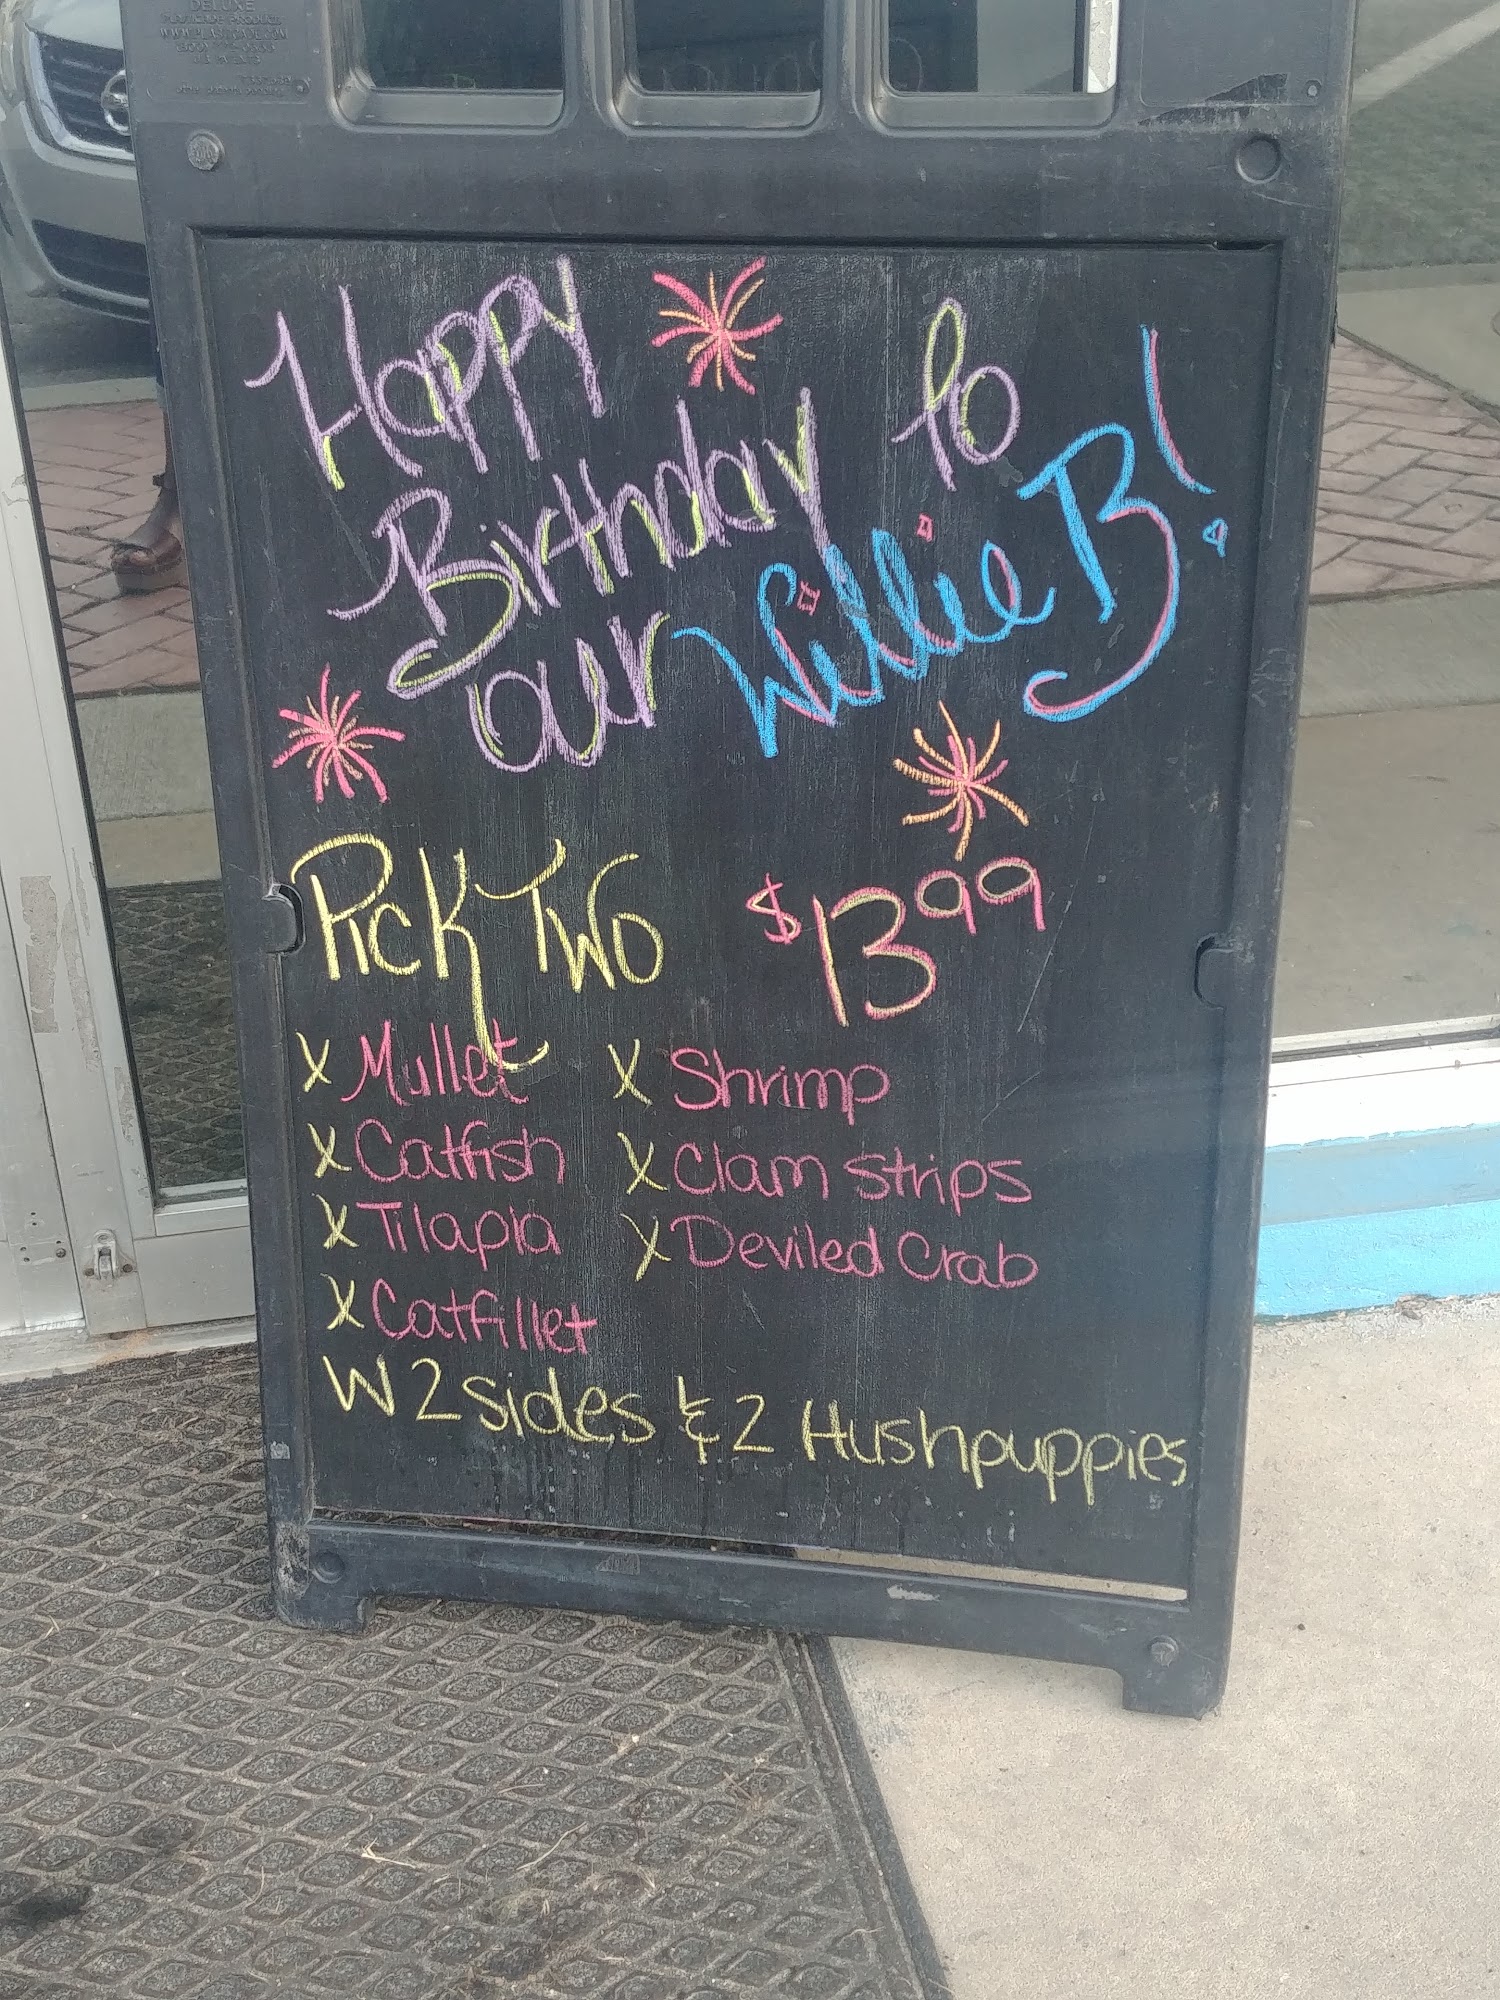 DELUXE
Happy
Birthday to
our Willie B!
Pick Two $13.99
x Mullet x Shrimp
x Catfish x Clam Strips
x Tilapia x Deviled Crab
x Catfillet
W 2 sides & 2 Hushpuppies